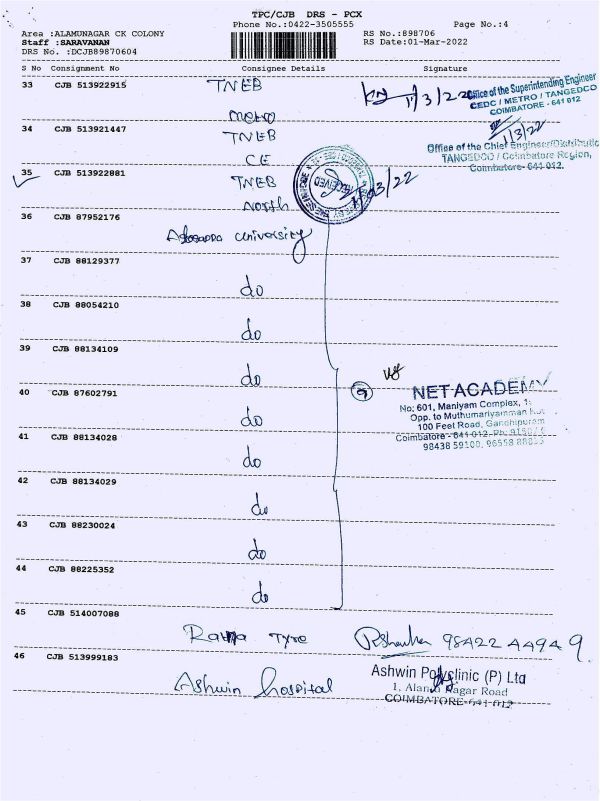 TPC/CJB DRS - PCX
Phone No.:0422-3505555 Page No.:4
Area :ALAMUNAGAR CK COLONY RS No.:898706
Staff :SARAVANAN RS Date:01-Mar-2022
DRS No. :DCJB89870604
S No Consignment No Consignee Details Signature
33 CJB 513922915 TNEB 1/3/22
Metro
Office of the Superintending Engineer
CEDC / METRO / TANGEDCO
COIMBATORE - 641 012
34 CJB 513921447 TNEB 1/3/22
CE
Office of the Chief Engineer/Distribution
TANGEDCO / Coimbatore Region,
Coimbatore- 641 012.
35 CJB 513922881 TNEB
North
RECEIVED
36 CJB 87952176
university
37 CJB 88129377
do
38 CJB 88054210
do
39 CJB 88134109
do
40 CJB 87602791
do
NET ACADEMY
No: 601, Maniyam Complex,
Opp. to Muthumariyamman
100 Feet Road, Gandhipuram
Coimbatore - 641 012. Ph:
98438 59100, 96558
41 CJB 88134028
do
42 CJB 88134029
do
43 CJB 88230024
do
44 CJB 88225352
do
45 CJB 514007088
Tyre 98422 44949
46 CJB 513999183
Ashwin hospital
Ashwin Polyclinic (P) Ltd
1, Alamu Nagar Road
COIMBATORE-641 012